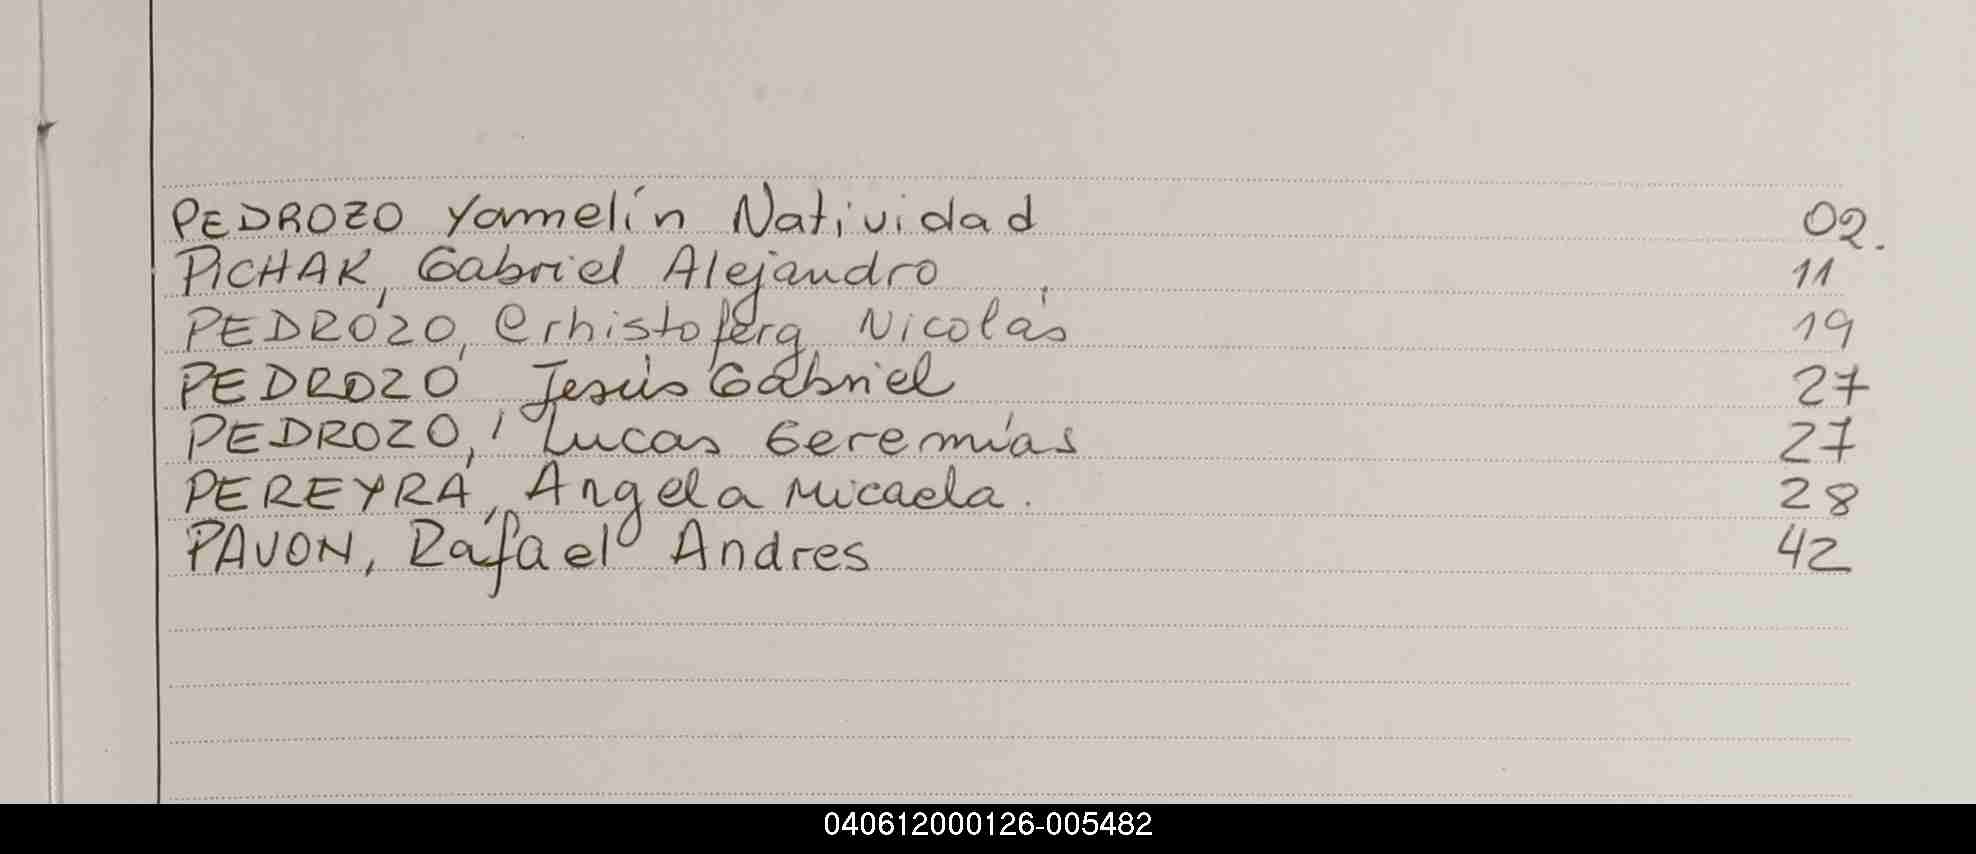 PEDROZO Yamelín Natividad 02.
PICHAK, Gabriel Alejandro 11
PEDROZO, Crhistoferg Nicolás 19
PEDROZO Jesús Gabriel 27
PEDROZO, Lucas Geremías 27
PEREYRA, Angela Micaela. 28
PAVON, Rafael Andres 42
040612000126-005482